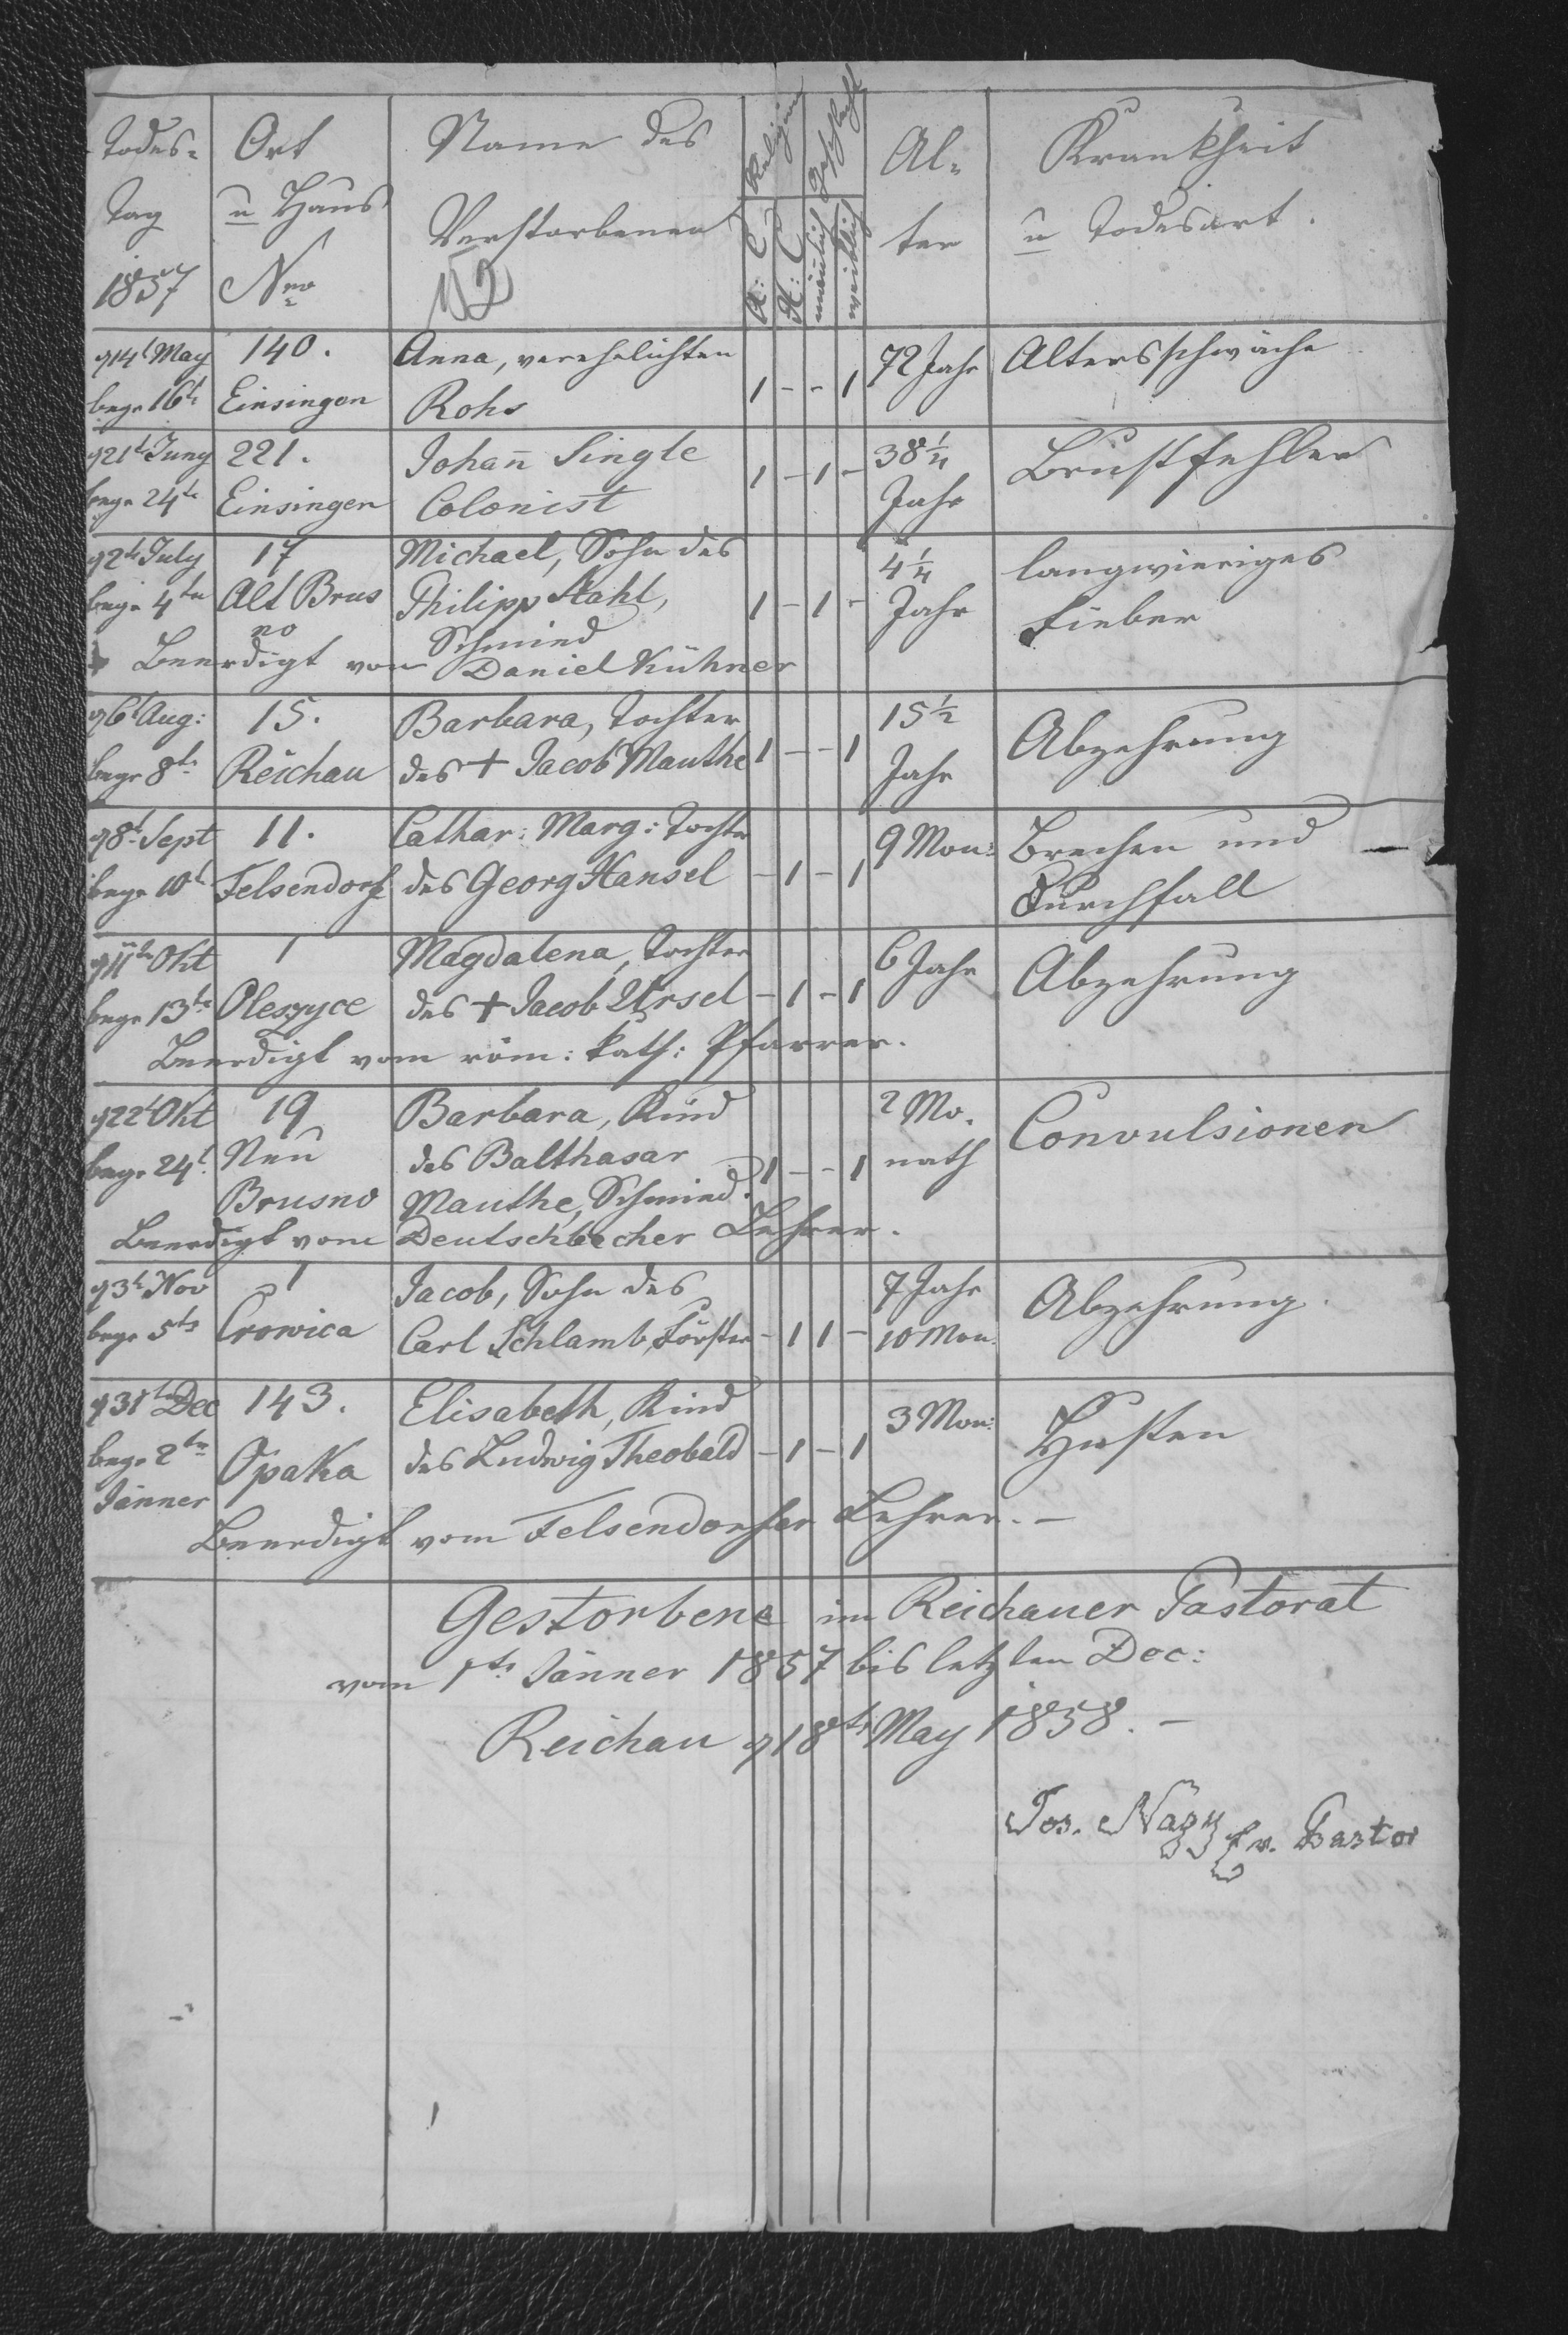 Todes- Ort Name des Religion Geschlecht Al- Krankheit
Tag u Haus Verstorbenen A: C H: C männlich weiblich ter u Todesart.
1857 Nro 152
g 14t May 140. Anna, verehelichten 72 Jahr Altersschwäche
begr 16t Einsingen Rohs 1 - - 1
g 21t Juny 221. Johann Single 38 1/4 Brustfehler
begr 24te Einsingen Colonist 1 - 1 - Jahr
g 2te July 17 Michael, Sohn des 4 1/4 langwieriges
begr 4te Alt Brus Philipp Stahl, 1 - 1 - Jahr Fieber
no Schmied
Beerdigt von Daniel Kühner
g 6t Aug: 15. Barbara, Tochter 15 1/2 Abzehrung
begr 8te Reichau des + Jacob Mauthe 1 - - 1 Jahr
g 8t Sept 11. Cathar: Marg: Tochter 9 Mon: Brechen und
begr 10t Felsendorf des Georg Hansel - 1 - 1 Durchfall
g 11te Okt 1 Magdalena, Tochter 6 Jahr Abzehrung
begr 13te Oleszyce des + Jacob Ursel - 1 - 1
Beerdigt vom röm: kath: Pfarrer.
g 22t Okt 19 Barbara, Kind 2 Mo- Convulsionen
begr 24t Neu des Balthasar 1 - - 1 nath
Brusno Mauthe, Schmied.
Beerdigt vom Deutschbacher Lehrer.
g 3te Nov 1 Jacob, Sohn des 7 Jahr Abzehrung.
begr 5te Crowica Carl Schlamb, Förster - 1 1 - 10 Mon.
g 31te Dec 143. Elisabeth, Kind 3 Mon: Husten
begr 2te Opaka des Ludwig Theobald - 1 - 1
Jänner
Beerdigt vom Felsendorfer Lehrer. -
Gestorbene im Reichauer Pastorat
vom 1te Jänner 1857 bis letzten Dec:
Reichau g 18te May 1858. -
Jos. Nagy Ev. Pastor